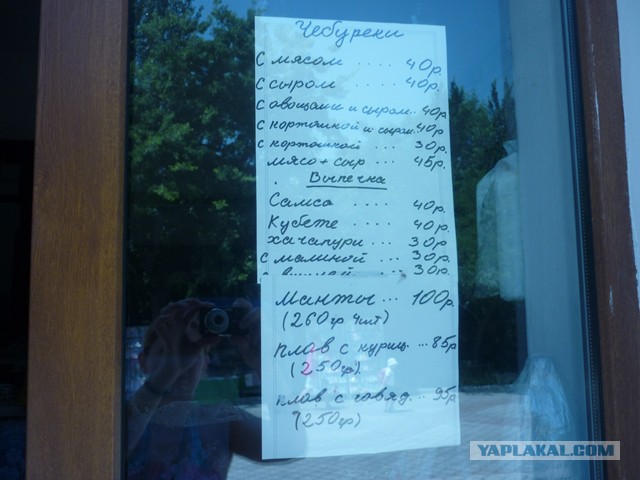 Чебуреки
С мясом .... 40р.
С сыром .... 40р.
С овощами и сыром.. 40р
С картошкой и сыром 40р
С картошкой .... 30р.
мясо + сыр ... 45р.
Выпечка
Самса .... 40р.
Кубете .... 40р.
хачапури ... 30р
с малиной ... 30р.
с вишней ... 30р.
Манты ... 100р
(260гр 4шт)
плов с куриц. ... 85р
(250гр).
плов с говяд... 95р
(250гр)
YAPLAKAL.COM